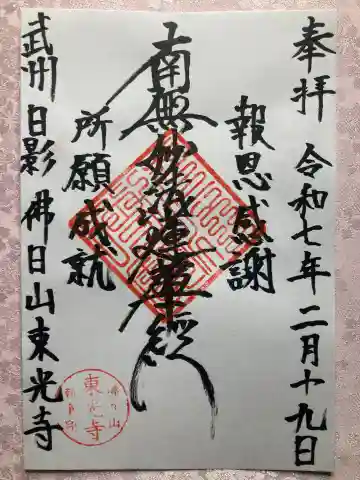 奉拝 令和七年二月十九日
報恩感謝
南無妙法蓮華経
所願成就
武州 日影 佛日山東光寺
東光寺